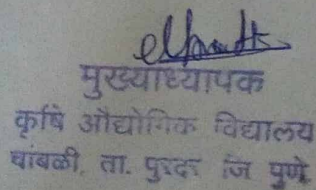 मुख्याध्यापक
कृषि औद्योगिक विद्यालय
वांबळी, ता. पुरंदर जि पुणे.